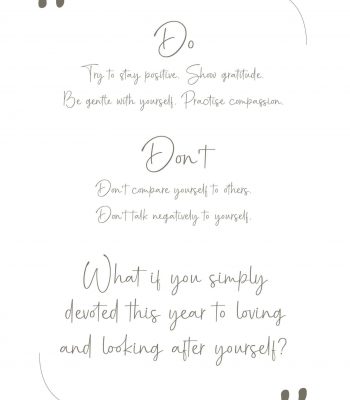 Do
Try to stay positive. Show gratitude.
Be gentle with yourself. Practise compassion.
Don't
Don't compare yourself to others.
Don't talk negatively to yourself.
What if you simply
devoted this year to loving
and looking after yourself?